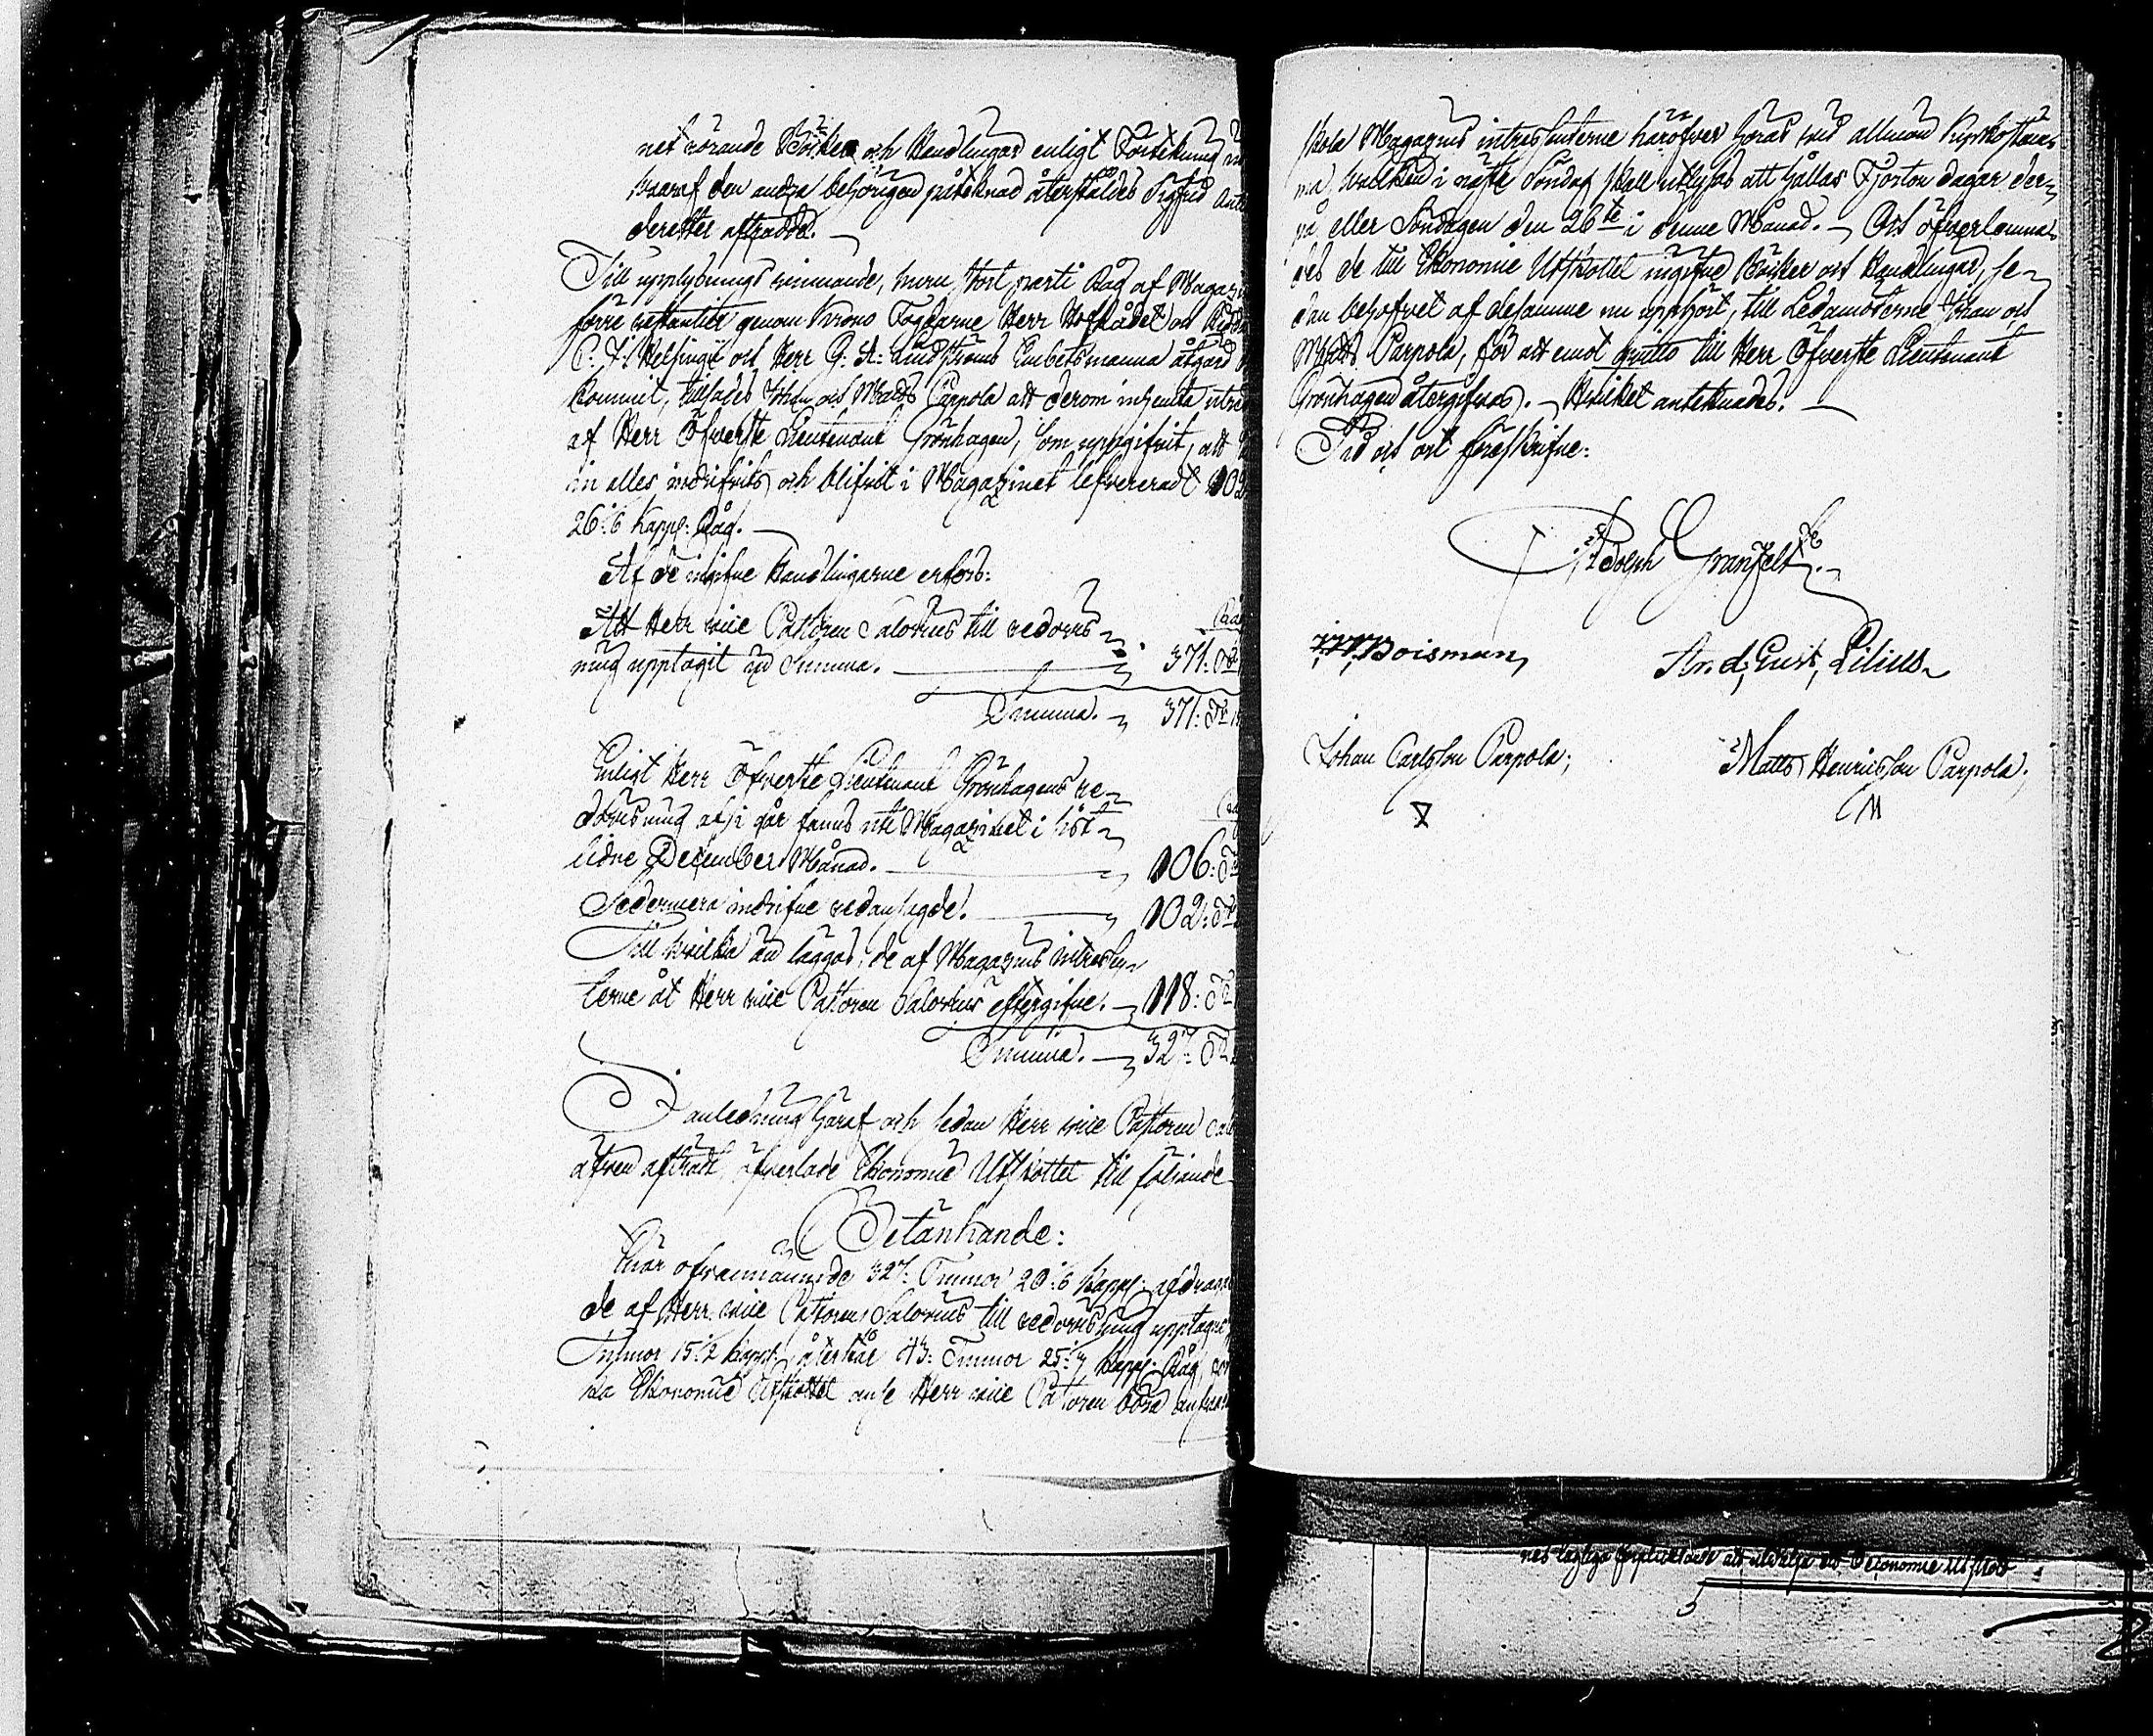 net rörande Böcker och Handlingar enligt Förtekning
hvaraf den andra behörigen påteknad återstäldes Sigfrid
derefter afträdde.
Till upplysnings vinnande, huru stort parti Råg af Magazin
förre restantier genom Krono Fogdarne Herr Hofrådet och
C: J: Helsingii och Herr G: A: Lindströms Embetsmanna åtgärd
kommit, Johan och Matts Parpola att derom inhemta
af Herr Öfverste Lieutenant Grönhagen, som uppgifvit, att
in alles indrifvits och blifvit i Magazinet levereradt 102
26:6 Kapp: Råg.
Af de ingifne Handlingarne erfors:
Att Herr vice Pastoren Salovius till redovis-
ning upptagit en Summa. 371: Tr
Summa. 371: Tr
Enligt Herr Öfverste Lieutenant Grönhagens re-
dovisning af i går fanns uti Magazinet i sist-
lidne December Månad. 106: Tr
Sedermera indrifne redansagde. 102: Tr
Till hvilka än läggas, de af Magazins intressen-
terne åt Herr vice Pastoren Salovius eftergifne. 118: Tr
Summa. 327: Tr
I anledning häraf och sedan Herr vice Pastoren
äfven afträdt, öfverlade Ekonomie Utskottet till följande
Betänkande:
När ofvannämnde 327: Tunnor 20:6 Kapp: afdragas
de af Herr vice Pastoren Salovius till redovisning upptagne
Tunnor 15:2 Kapp: återstår 43: Tunnor 25: Kapp: Råg,
ka Ekonomie Utskottet anse Herr vice Pastoren böra
skola Magazins intressenterne häröfver höras vid allmän Kyrkostäm-
ma, hvilken i nästa Söndag skall utlysas att hållas Fjorton dagar der-
på eller Söndagen den 26te i denne Månad. Och öfverlemna-
des de till Ekonomie Utskottet ingifne Böcker och Handlingar, se-
dan behofvet af desamme nu upphört, till Ledamöterne Johan och
Matts Parpola, för att emot qvitto till Herr Öfverste Lieutenant
Grönhagen återgifvas. Hvilket anteknades.
Tid och ort föreskrifne:
Adolph Granfelt
Boisman
And, Gust, Lilius
Johan Carlsson Parpola;
Matts Henricsson Parpola;
M
att Oeconomie Utskott